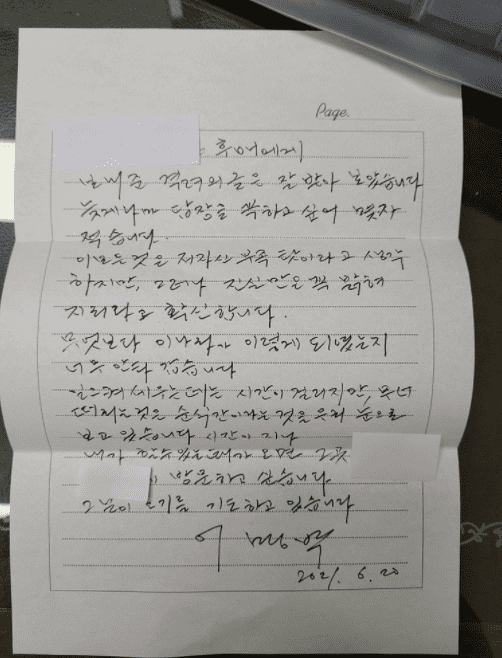 Page.
후배에게
보내준 격려의 글은 잘 받아 보았습니다
늦게나마 답장을 꼭하고 싶어 몇자
적습니다.
이모든것은 저자신 부족 탓이라고 생각
하지만, 그러나 진실만은 꼭 밝혀
지리라고 확신합니다.
무엇보다 이나라가 이렇게 되었는지
너무 안타 깝습니다
일으켜 세우는데는 시간이 걸리지만, 무너
떠리는것은 순식간이라는 것을 우리 눈으로
보고 있습니다 시간이 지나
내가 할수있는때가 오면 그곳
방문하고 싶습니다
그날이 오기를 기도하고 있습니다
이명박
2021. 6. 20